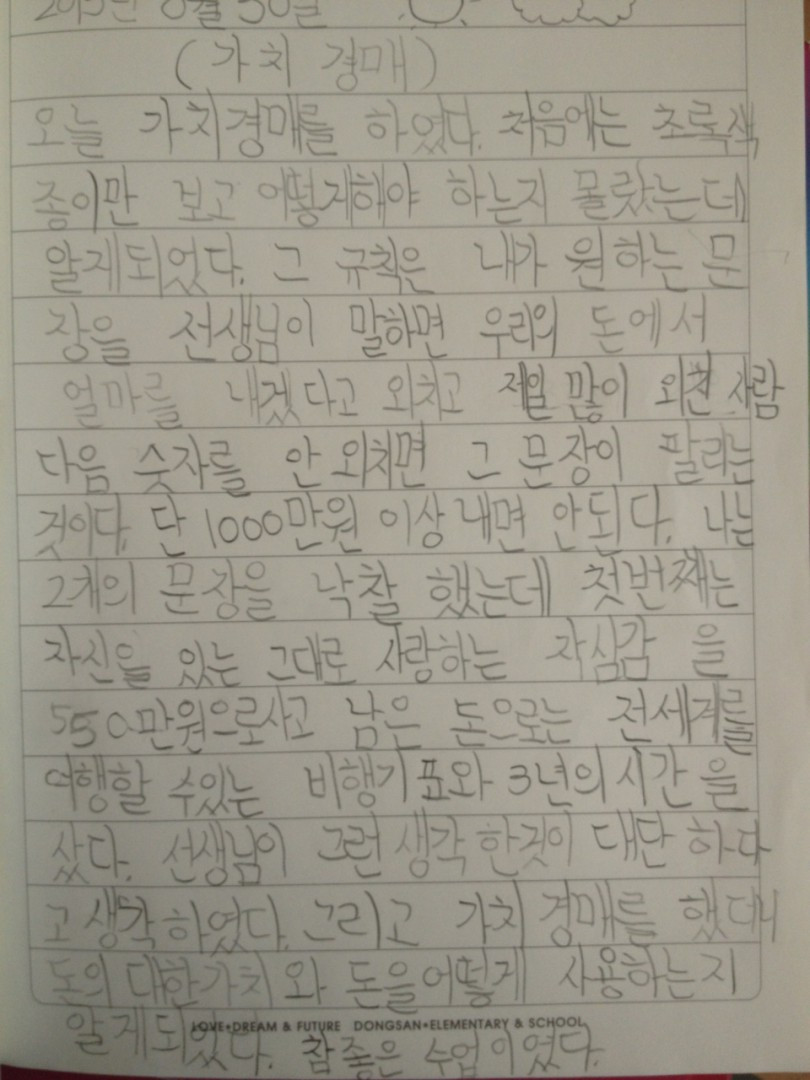 (가치 경매)
오늘 가치경매를 하였다. 처음에는 초록색
종이만 보고 어떻게해야 하는지 몰랐는데
알게되었다. 그 규칙은 내가 원하는 문
장을 선생님이 말하면 우리의 돈에서
얼마를 내겠다고 외치고 제일 많이 외친 사람
다음 숫자를 안 외치면 그 문장이 팔리는
것이다. 단 1000만원 이상 내면 안된다. 나는
2개의 문장을 낙찰 했는데 첫번째는
자신을 있는 그대로 사랑하는 자심감 을
550만원으로사고 남은 돈으로는 전세계를
여행할 수있는 비행기 표와 3년의 시간 을
샀다. 선생님이 그런 생각 한것이 대단 하다
고 생각 하였다. 그리고 가치 경매를 했더니
돈의 대한가치 와 돈을어떻게 사용하는지
알게되었다. 참 좋은 수업 이였다.
LOVE•DREAM & FUTURE DONGSAN•ELEMENTARY & SCHOOL